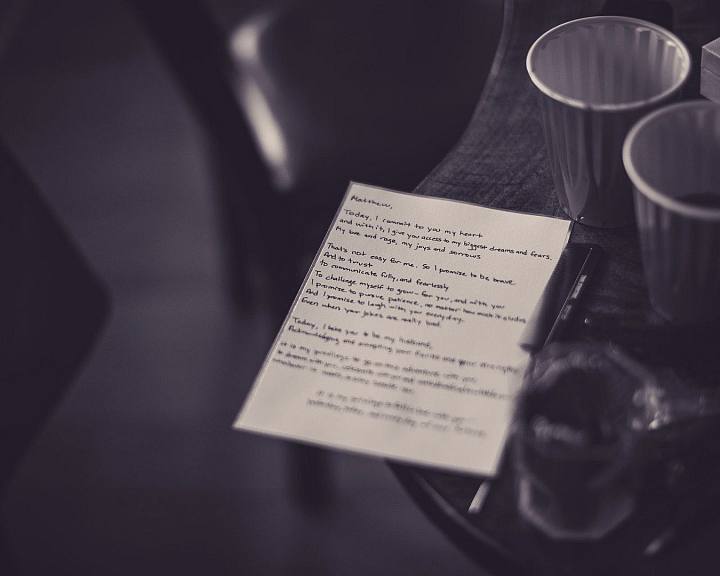 Matthew,
Today, I commit to you my heart
and with it, I give you access to my biggest dreams and fears,
My love and rage, my joys and sorrows
That's not easy for me. So I promise to be brave.
And to trust
To communicate fully, and fearlessly
To challenge myself to grow - for you, and with you
I promise to pursue patience, no matter how much it eludes
And I promise to laugh with you everyday.
Even when your jokes are really bad.
Today, I take you to be my husband,
Acknowledging and accepting your faults and your strengths
It is my privilege to go on this adventure with you
to dream with you, celebrate with you and